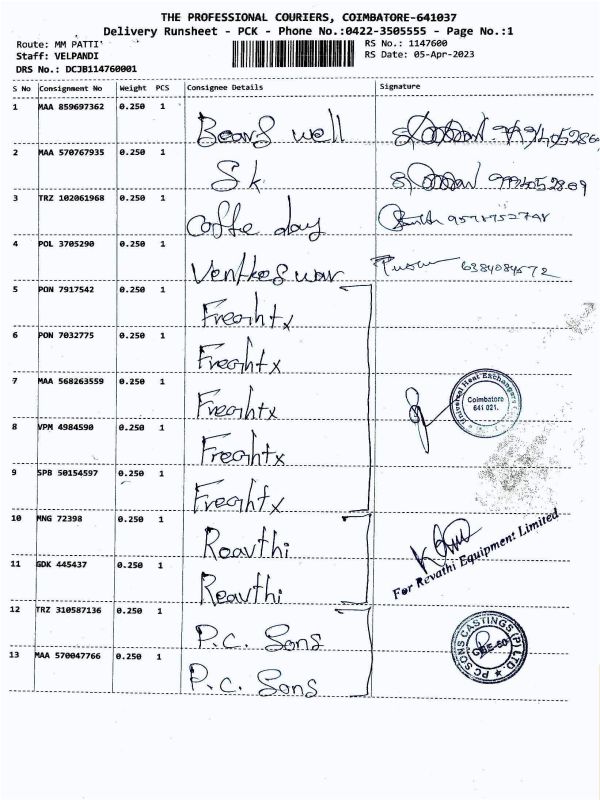 THE PROFESSIONAL COURIERS, COIMBATORE-641037
Delivery Runsheet - PCK - Phone No.:0422-3505555 - Page No.:1
Route: MM PATTI
RS No.: 1147600
Staff: VELPANDI
RS Date: 05-Apr-2023
DRS No.: DCJB114760001
S No Consignment No Weight PCS Consignee Details Signature
1 MAA 859697362 0.250 1
well
2 MAA 570767935 0.250 1
Sk 9994052809
3 TRZ 102061968 0.250 1
Coffe day
4 POL 3705290 0.250 1
Ventkeswar
5 PON 7917542 0.250 1
Freahtx
6 PON 7032775 0.250 1
Freahtx
7 MAA 568263559 0.250 1
Freahtx
Universal Heat Exchangers
Coimbatore
641 021.
8 VPM 4984590 0.250 1
Freahtx
9 SPB 50154597 0.250 1
Freahtx
10 MNG 72398 0.250 1
Roavthi
For Revathi Equipment Limited
11 GDK 445437 0.250 1
Reavthi
12 TRZ 310587136 0.250 1
P.C. Sons
PC SONS CASTINGS (P) LTD.
13 MAA 570047766 0.250 1
P.C. Sons